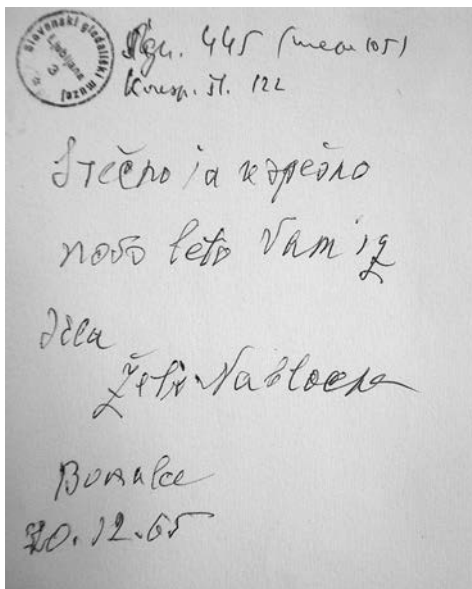 Slovenski gledališki muzej
Ljubljana
3
Sgn. 445 (
Koresp. št. 122
Srečno in uspešno
novo leto Vam iz
srca
želi Nablocka
20.12.65